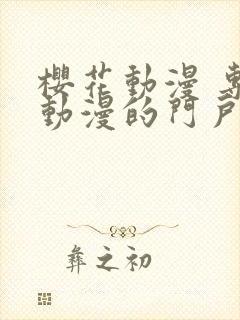 櫻花動漫
動漫的門戶
彝之初